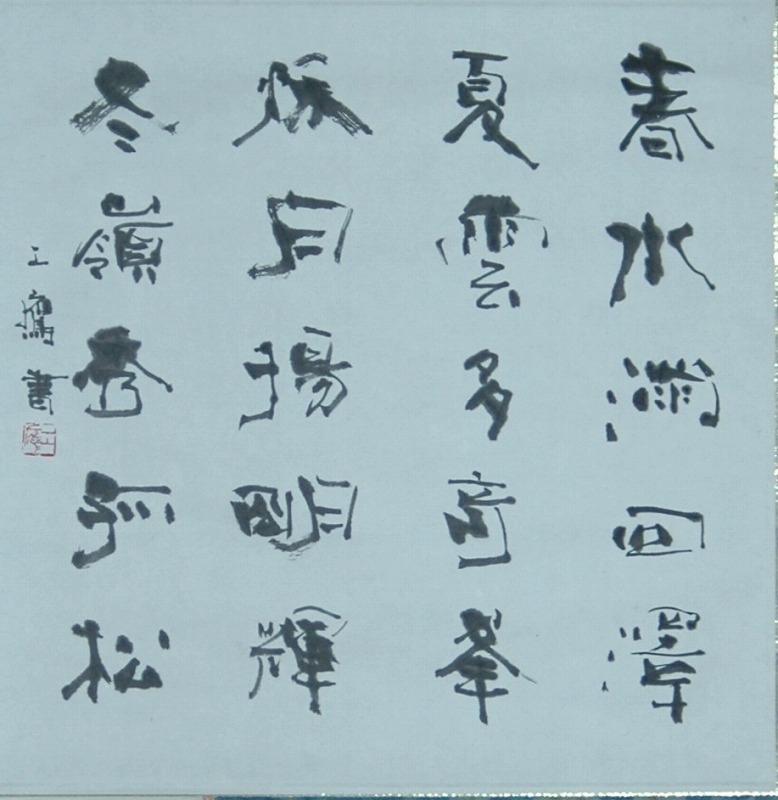 春水滿四澤
夏雲多奇峯
秋月揚朙輝
冬嶺秀孤松
書